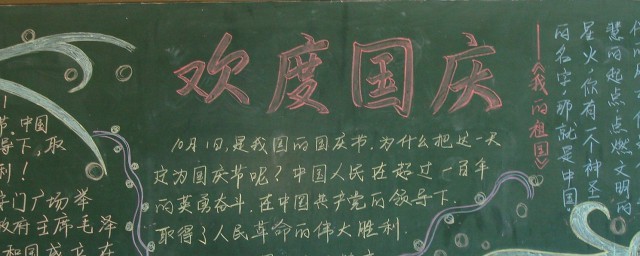 欢度国庆
10月1日,是我国的国庆节.为什么把这一天
定为国庆节呢?中国人民在超过一百年
的英勇奋斗.在中国共产党的领导下.
取得了人民革命的伟大胜利.
!
节.中国
导下,取
利!
安门广场举
政府主席毛泽
和国成立.在
——《我的祖国》
慧的起点点燃文明的
星火,你有一个神圣
的名字那就是中国